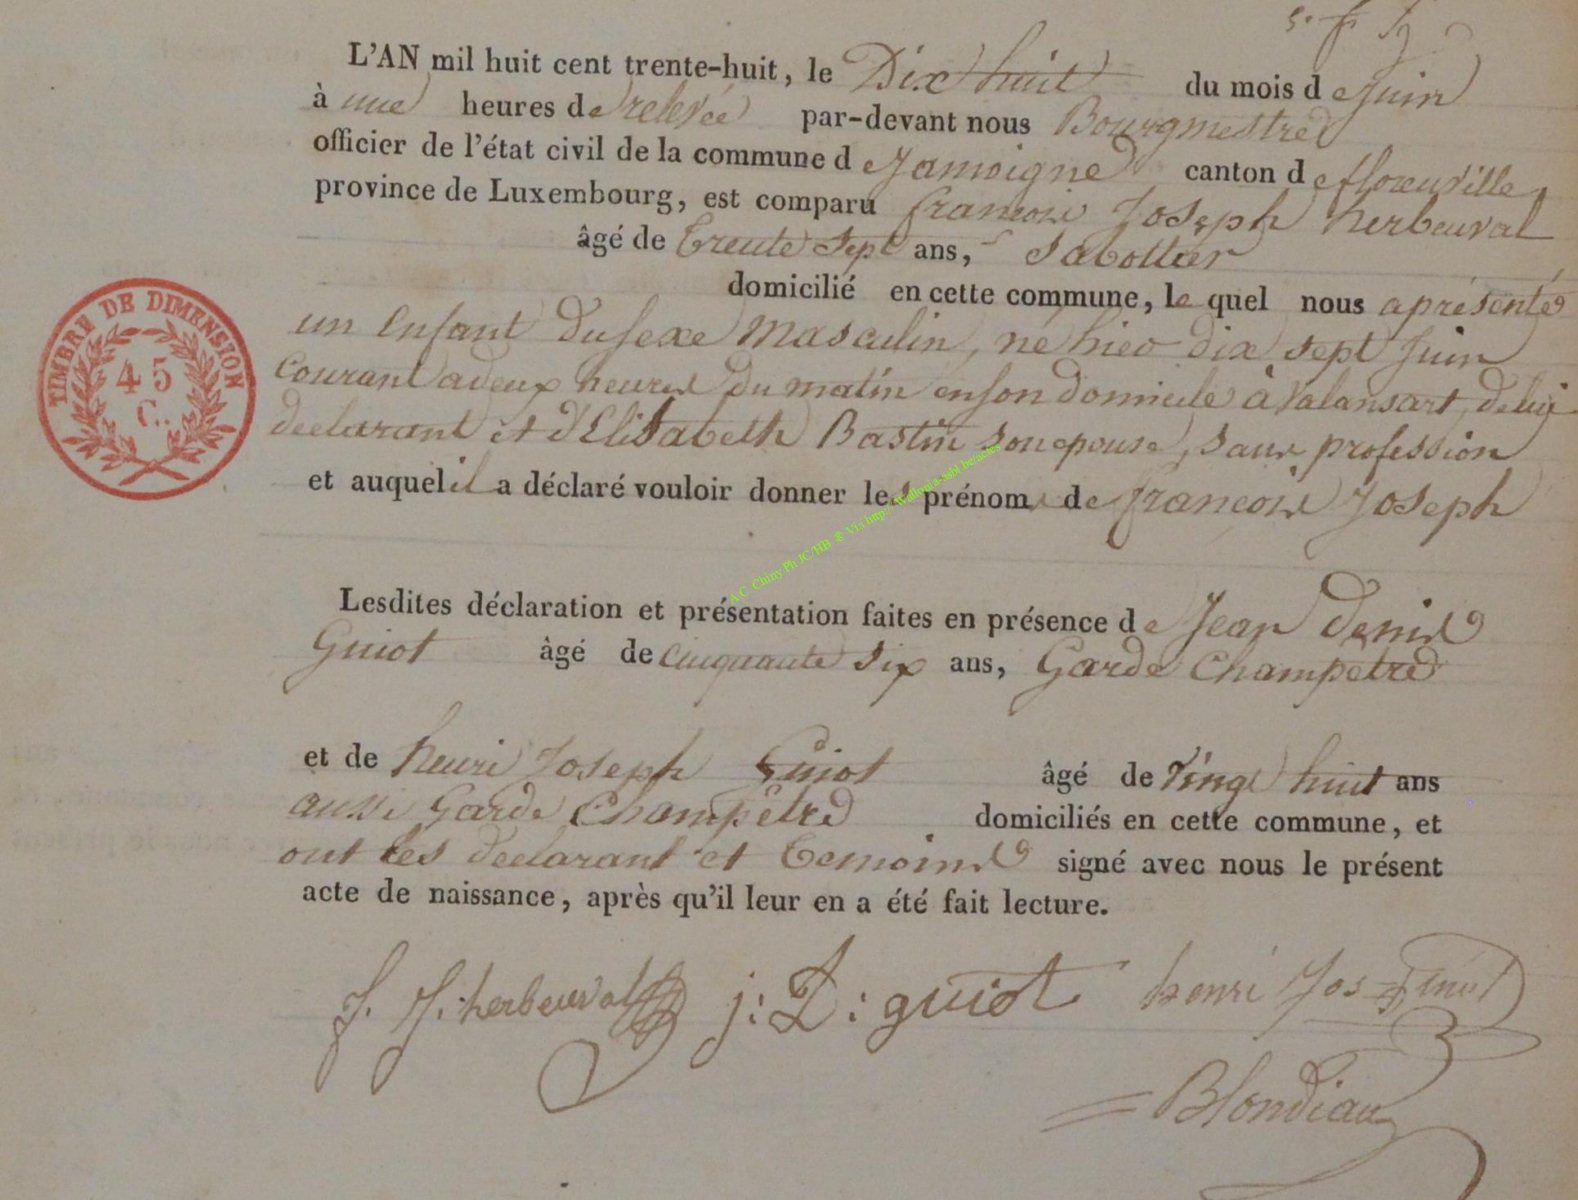 L'AN mil huit cent trente-huit, le Dix huit du mois de juin
à une heures de relevée par-devant nous Bourgmestre
officier de l'état civil de la commune de Jamoigne canton de florenville
province de Luxembourg, est comparu françois Joseph herbeuval
âgé de trente sept ans, Sabottier
domicilié en cette commune, le quel nous a présenté
un enfant du sexe Masculin, né hier dix sept Juin
courant a deux heures du matin en son domicile à Valansart, de lui
declarant et d'Elisabeth Bastin son epouse, sans profession
et auquel il a déclaré vouloir donner les prénoms de françois Joseph
Lesdites déclaration et présentation faites en présence de Jean denis
Guiot âgé de cinquante six ans, Garde Champetre
et de henri Joseph Guiot âgé de vingt huit ans
aussi Garde Champêtre domiciliés en cette commune, et
ont les declarant et temoins signé avec nous le présent
acte de naissance, après qu'il leur en a été fait lecture.
f. J. herbeuval j: D: guiot henri Jos guiot
Blondiau
TIMBRE DE DIMENSION
45
C.
A.C. Chiny Ph JC/HB & Via http://Wallonia-asbl.be/actes